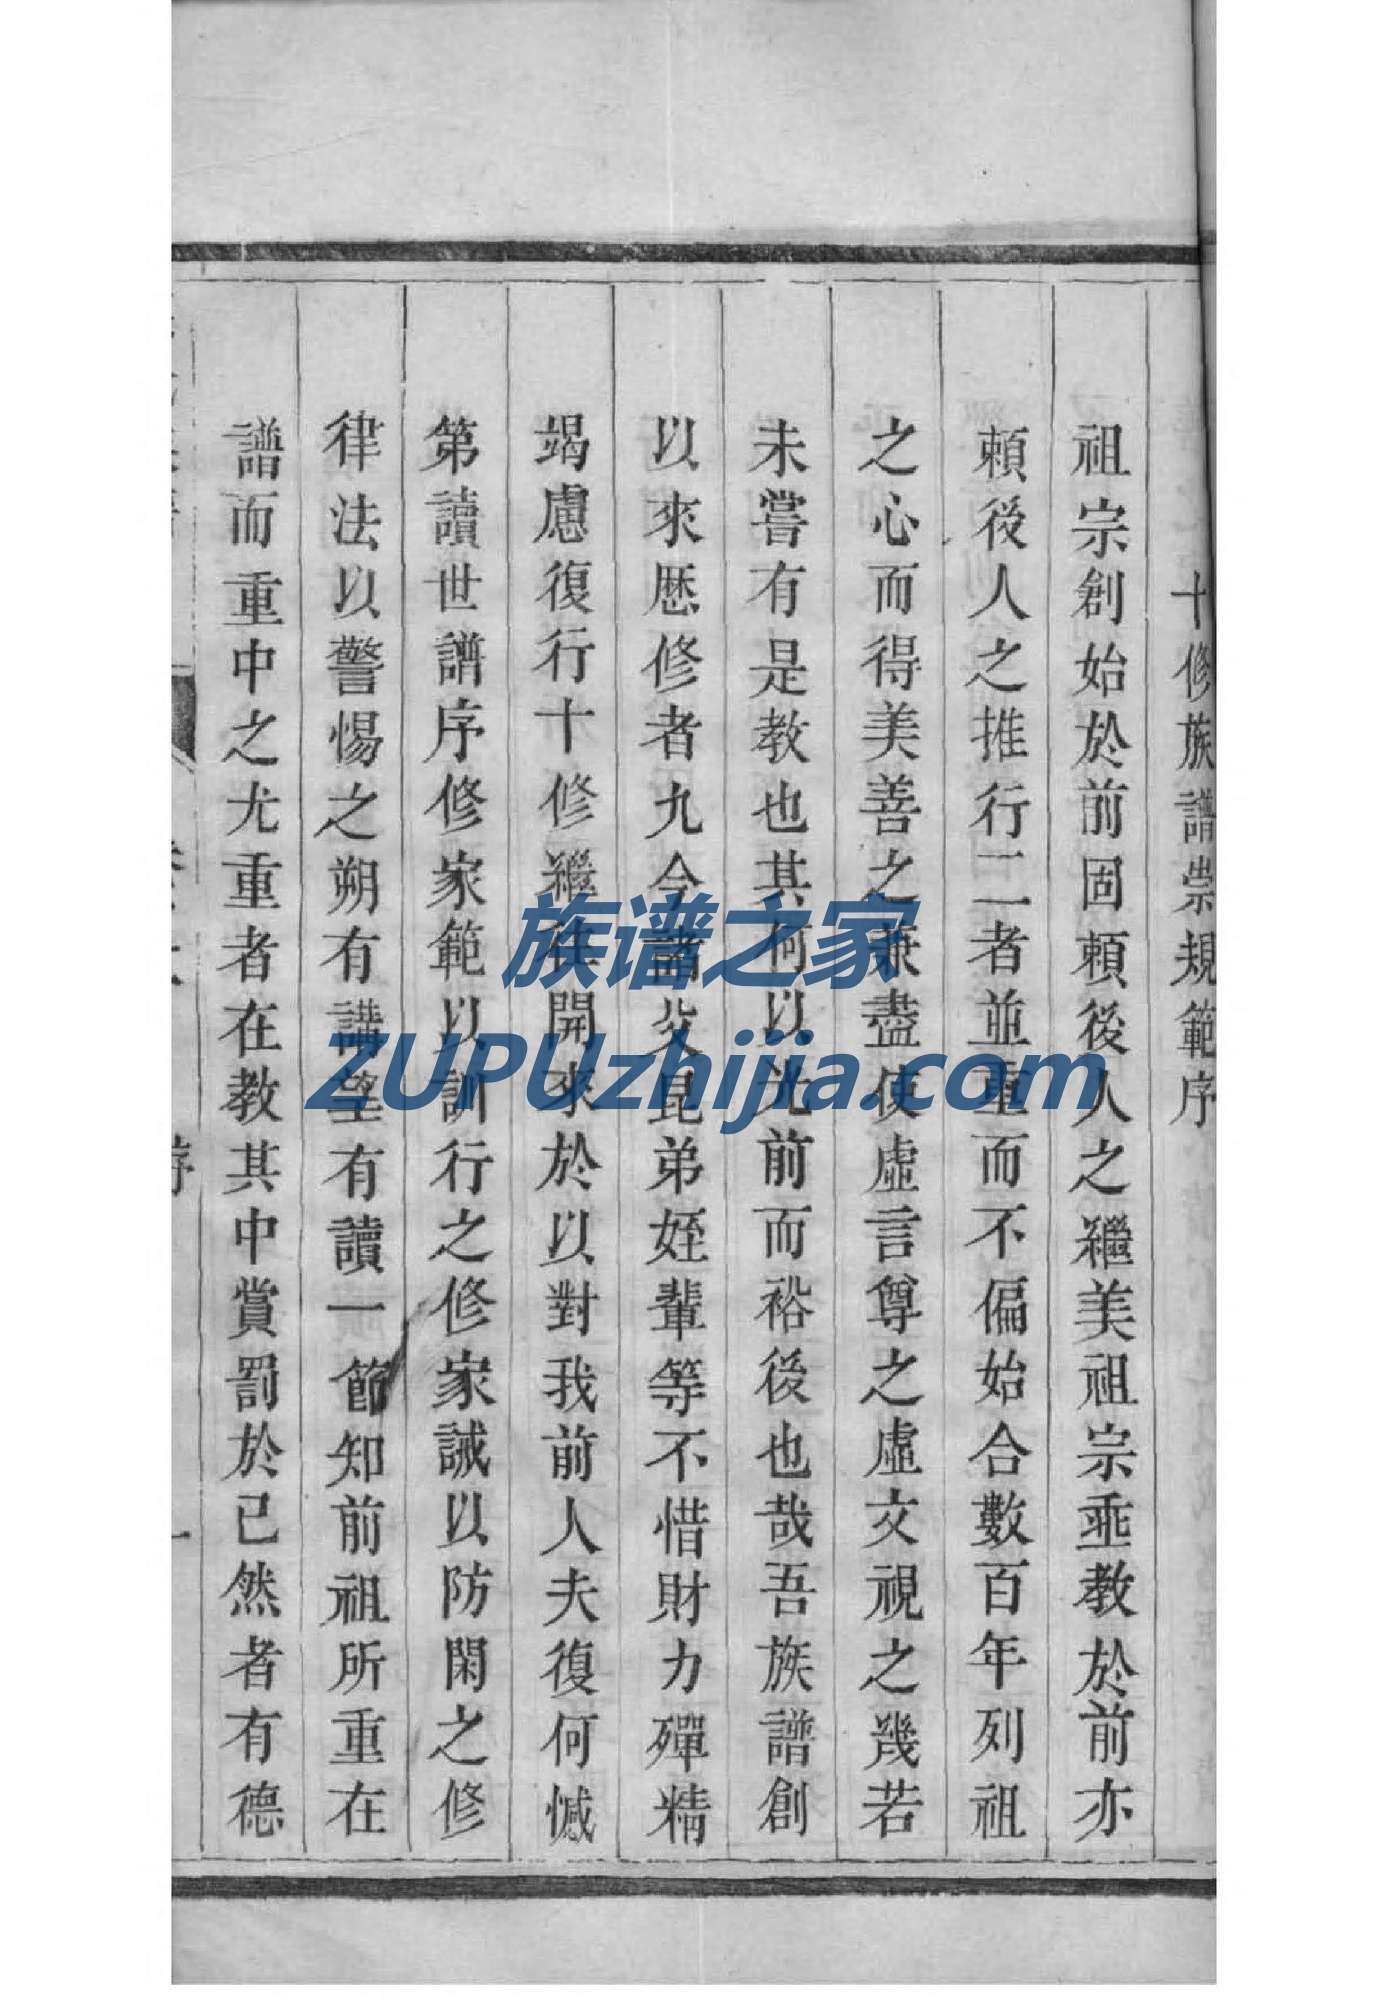 十修族譜崇規範序
祖宗創始於前固頼後人之繼美祖宗垂教於前亦
頼後人之推行二者並重而不偏始合數百年列祖
之心而得美善之兼盡使虛言尊之虛文視之幾若
未嘗有是教也其何以光前而裕後也哉吾族譜創
以來歷修者九今諸父昆弟姪輩等不惜財力殫精
竭慮復行十修繼往開來於以對我前人夫復何憾
第讀世譜序修家範以訓行之修家誡以防閑之修
律法以警惕之朔有講望有讀一節知前祖所重在
譜而重中之尤重者在教其中賞罰於已然者有德
序
一
族谱之家
ZUPUzhijia.com